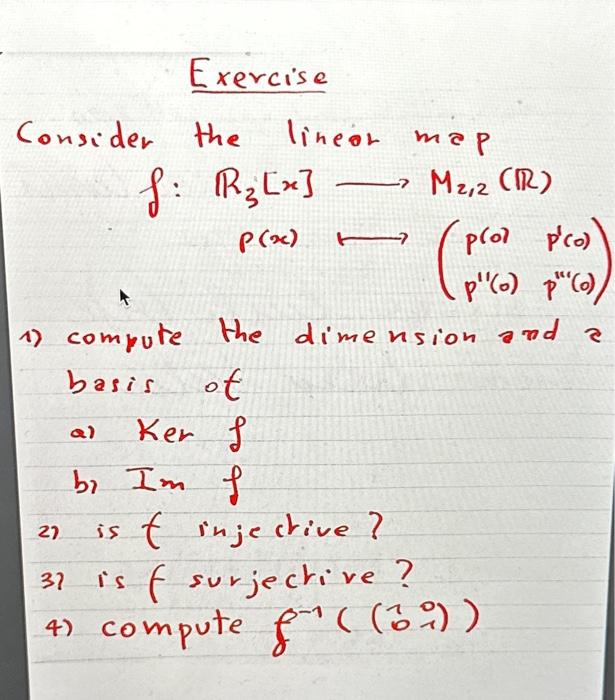 Exercise
Consider the linear map
f: ℝ₃[x] ⟶ M₂,₂(ℝ)
p(x) ⟼ (p(0) p'(0)
p''(0) p'''(0))
1) compute the dimension and a
basis of
a) Ker f
b) Im f
2) is f injective?
3) is f surjective?
4) compute f⁻¹((1 0
0 1))